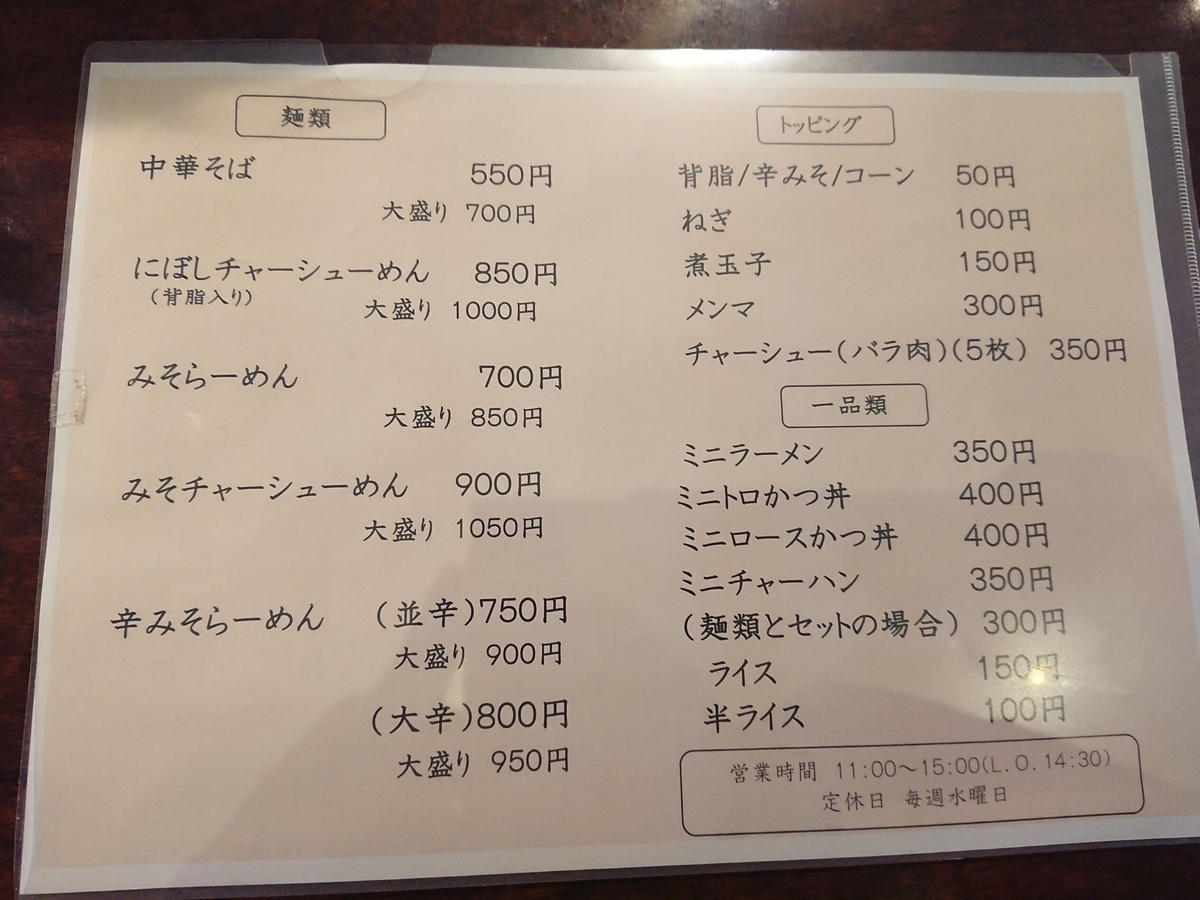 麺類
中華そば 550円
大盛り 700円
にぼしチャーシューめん 850円
(背脂入り) 大盛り 1000円
みそらーめん 700円
大盛り 850円
みそチャーシューめん 900円
大盛り 1050円
辛みそらーめん (並辛)750円
大盛り 900円
(大辛)800円
大盛り 950円
トッピング
背脂/辛みそ/コーン 50円
ねぎ 100円
煮玉子 150円
メンマ 300円
チャーシュー(バラ肉)(5枚) 350円
一品類
ミニラーメン 350円
ミニトロかつ丼 400円
ミニロースかつ丼 400円
ミニチャーハン 350円
(麺類とセットの場合) 300円
ライス 150円
半ライス 100円
営業時間 11:00～15:00(L.O.14:30)
定休日 毎週水曜日